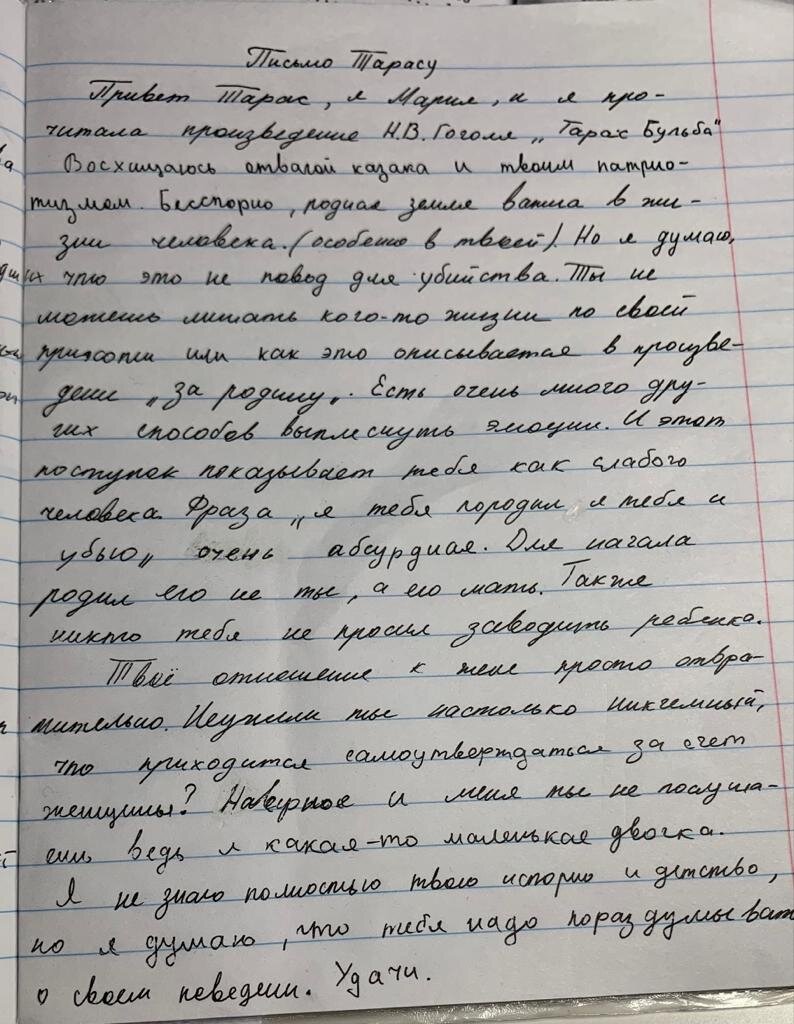 Письмо Тарасу
Привет Тарас, я Мария, и я про-
читала произведение Н.В. Гоголя „Тарас Бульба"
Восхищаюсь отвагой казака и твоим патрио-
тизмом. Бесспорно, родная земля важна в жи-
зни человека. (особено в твоей). Но я думаю,
что это не повод для убийства. Ты не
можешь лишать кого-то жизни по своей
прихоти или как это описывается в произве-
дени „за родину„. Есть очень много дру-
гих способов выплеснуть эмоции. И этот
поступок показывает тебя как слабого
человека. Фраза „я тебя породил я тебя и
убью„ очень абсурдная. Для начала
родил его не ты, а его мать. Также
никто тебя не просил заводить ребенка.
Твоё отношение к жене просто отвра-
тительно. Неужели ты настолько никчемный,
что приходится самоутверждаться за счет
женщины? Наверное и меня ты не послуша-
ешь ведь я какая-то маленькая двочка.
Я не знаю полностью твою историю и детство,
но я думаю, что тебя надо пораздумыват
о своем поведени. Удачи.